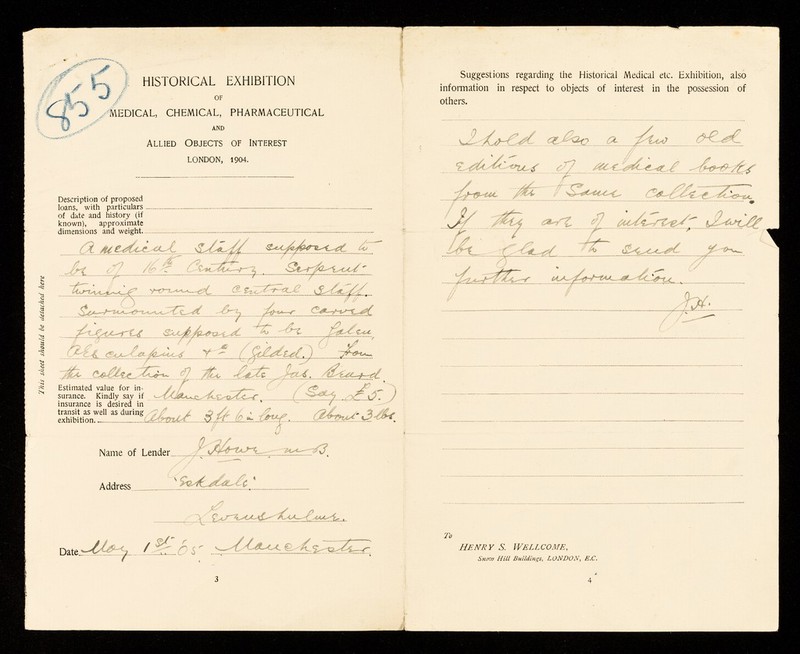 855
HISTORICAL EXHIBITION
OF
MEDICAL, CHEMICAL, PHARMACEUTICAL
AND
ALLIED OBJECTS OF INTEREST
LONDON, 1904.
Description of proposed
loans, with particulars
of date and history (if
known), approximate
dimensions and weight.
A medical staff supposed to
be of 16th Century. Serpent
twining round central staff.
Surmounted by four carved
figures supposed to be Galen,
Aesculapius &c (gilded.) From
the collection of the late Jas. Beard.
Manchester. (Say £5.)
Estimated value for in-
surance. Kindly say if
insurance is desired in
transit as well as during
exhibition.
About 3 ft 6 in long. About 3 lbs.
Name of Lender J. Howe M.B.
Address 'Eskdale'
Levenshulme.
Date May 1st '05. Manchester.
3
This sheet should be detached here
Suggestions regarding the Historical Medical etc. Exhibition, also
information in respect to objects of interest in the possession of
others.
I hold also a few old
editions of medical books
from the same collection.
If they are of interest, I will
be glad to send you
further information.
J.H.
To
HENRY S. WELLCOME,
Snow Hill Buildings, LONDON, E.C.
4